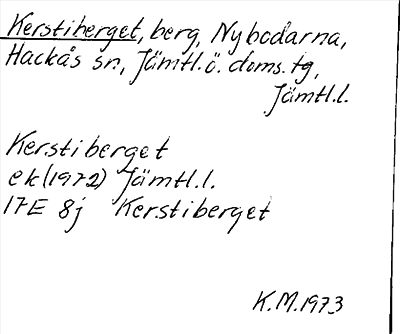 Kerstiberget, berg, Nybodarna,
Hackås sn, Jämtl.ö. doms. tg,
Jämtl.l.
Kerstiberget
ek (1972) Jämtl.l.
17E 8j Kerstiberget
K.M.1973